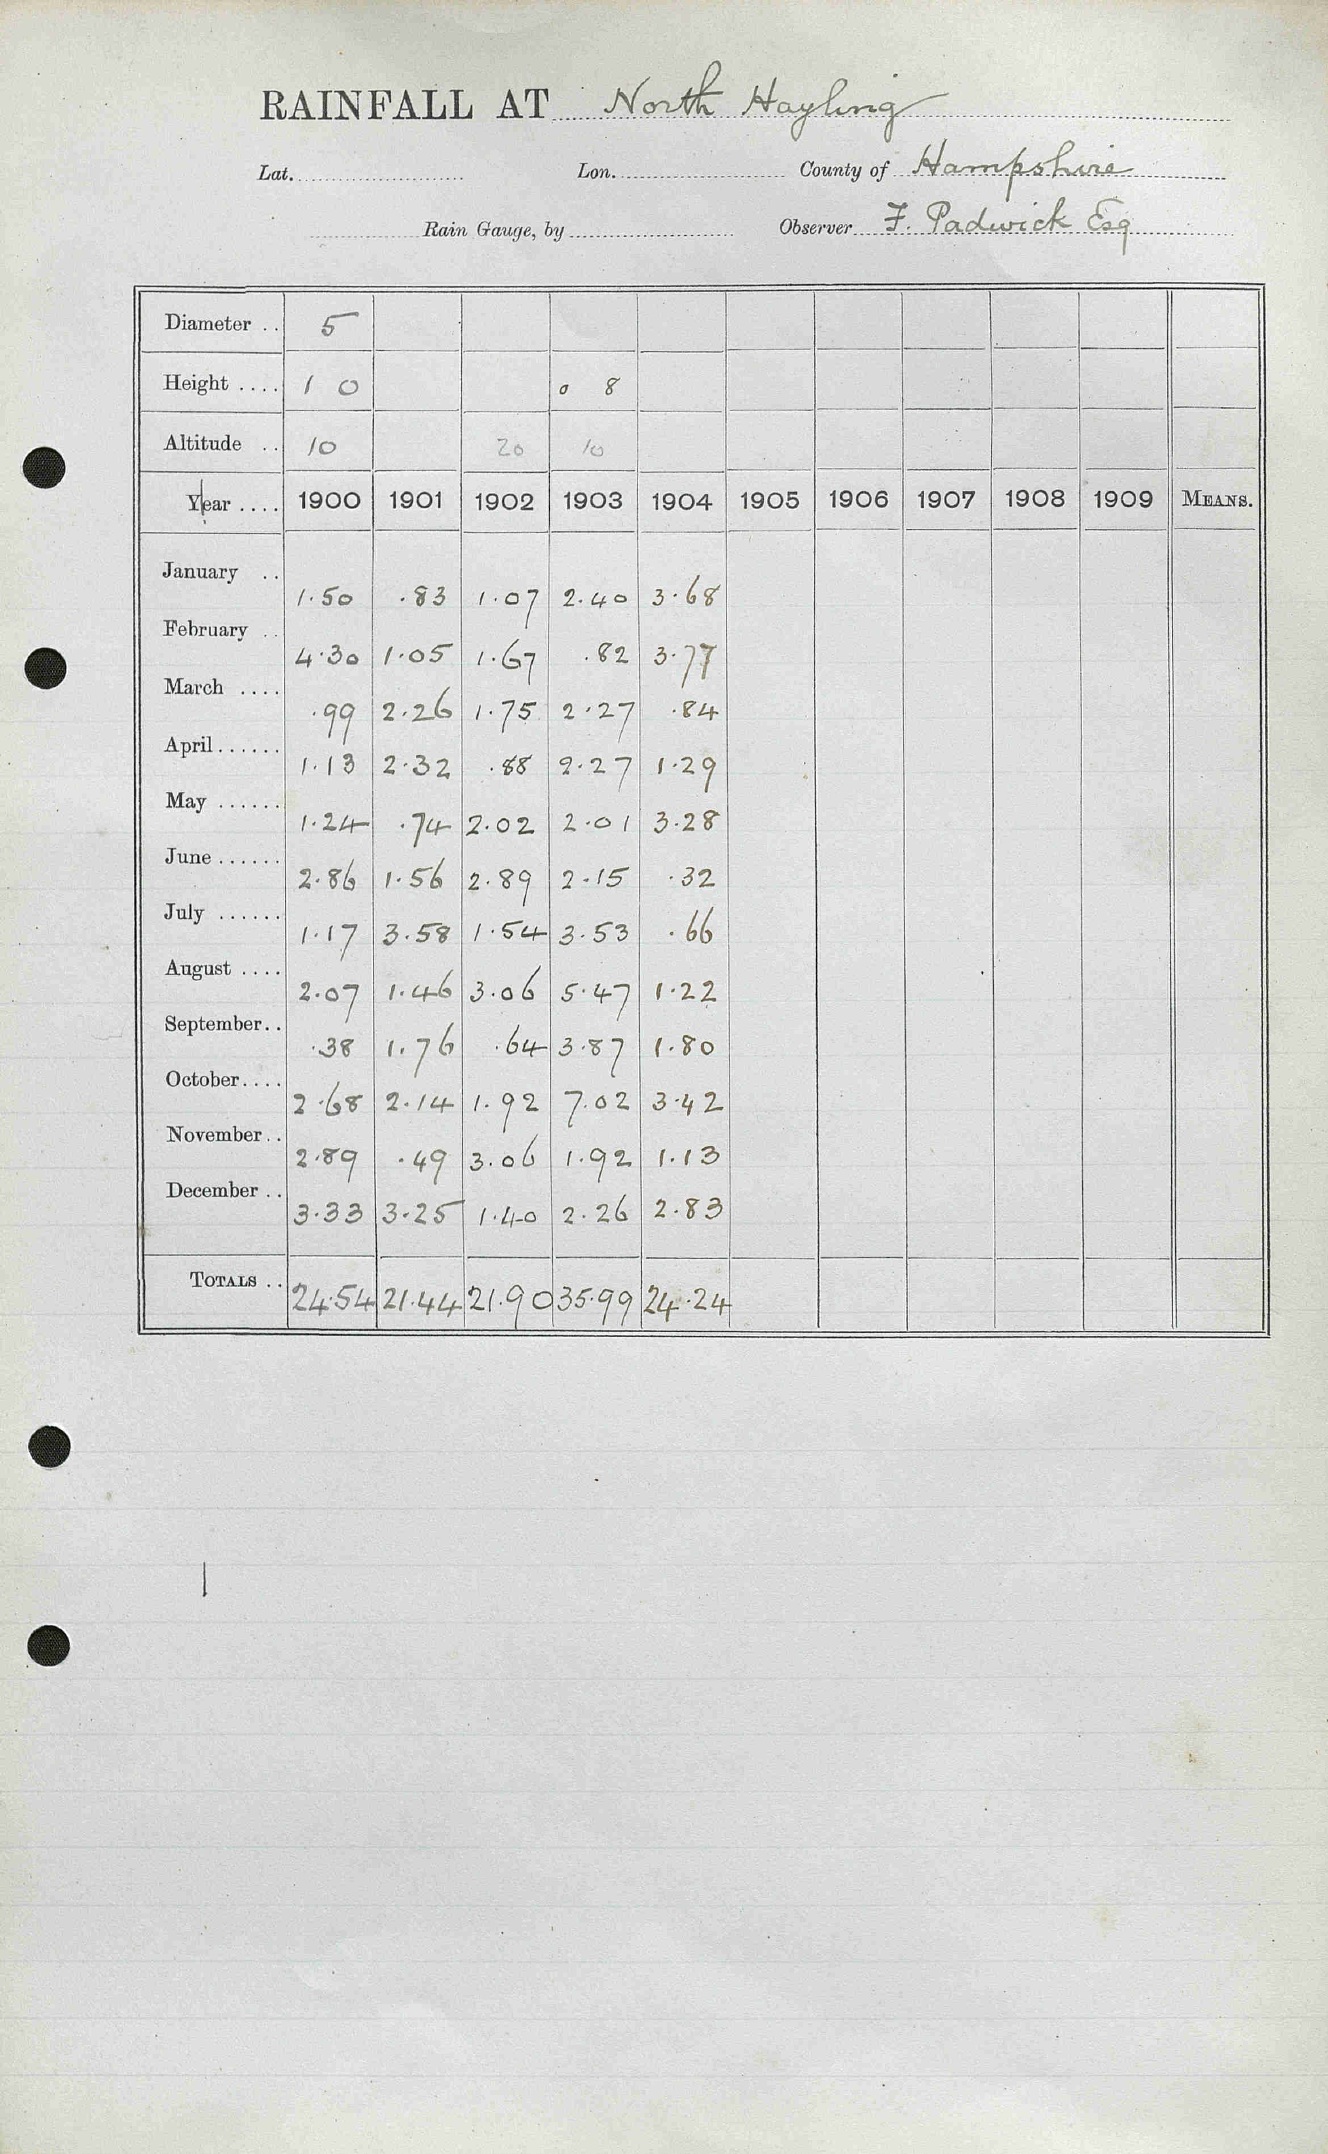 RAINFALL AT North Hayling
Lat. Lon. County of Hampshire
Rain Gauge, by Observer F. Padwick Esq
Diameter .. 5
Height .... 1 0 0 8
Altitude .. 10 20 10
Year .... 1900 1901 1902 1903 1904 1905 1906 1907 1908 1909 MEANS.
January .. 1.50 .83 1.07 2.40 3.68
February .. 4.30 1.05 1.67 .82 3.77
March .... .99 2.26 1.75 2.27 .84
April ...... 1.13 2.32 .88 2.27 1.29
May ...... 1.24 .74 2.02 2.01 3.28
June ...... 2.86 1.56 2.89 2.15 .32
July ...... 1.17 3.58 1.54 3.53 .66
August .... 2.07 1.46 3.06 5.47 1.22
September.. .38 1.76 .64 3.87 1.80
October.... 2.68 2.14 1.92 7.02 3.42
November.. 2.89 .49 3.06 1.92 1.13
December .. 3.33 3.25 1.40 2.26 2.83
TOTALS .. 24.54 21.44 21.90 35.99 24.24